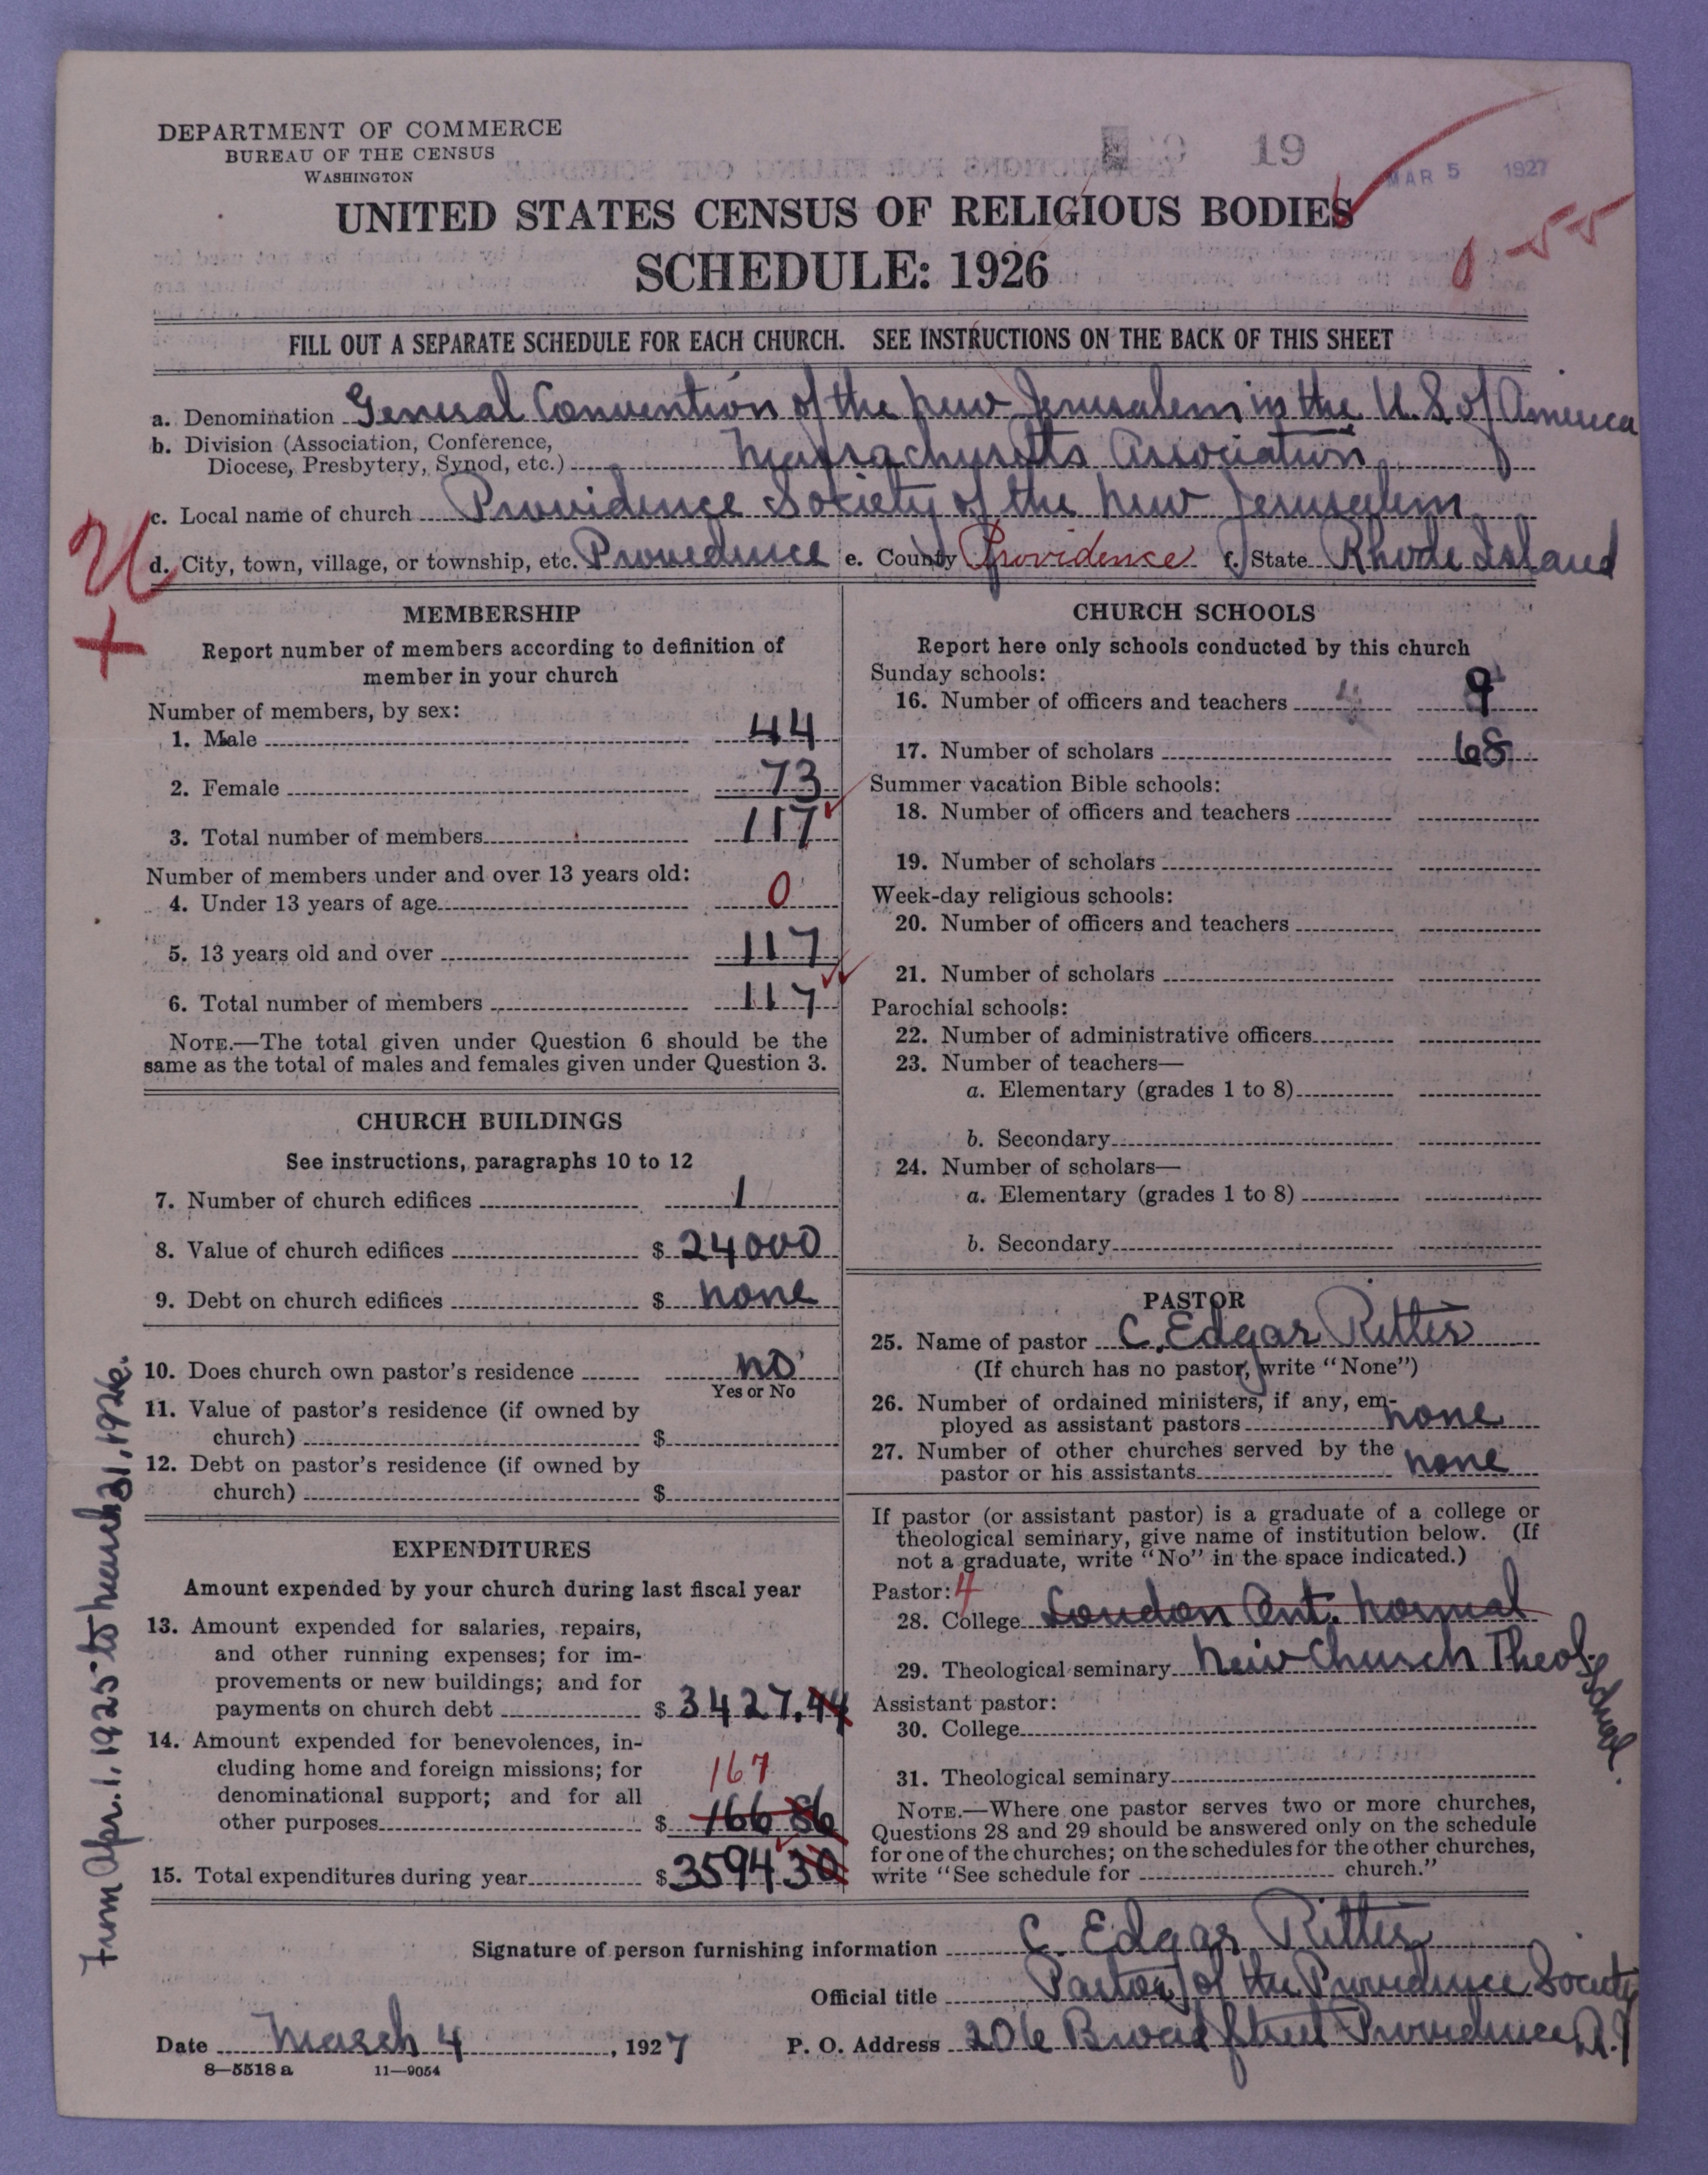 DEPARTMENT OF COMMERCE
BUREAU OF THE CENSUS
WASHINGTON
19
MAR 5 1927
UNITED STATES CENSUS OF RELIGIOUS BODIES
SCHEDULE: 1926
FILL OUT A SEPARATE SCHEDULE FOR EACH CHURCH. SEE INSTRUCTIONS ON THE BACK OF THIS SHEET
a. Denomination General Convention of the New Jerusalem in the U.S. of America
b. Division (Association, Conference,
Diocese, Presbytery, Synod, etc.) Massachusetts Association
c. Local name of church Providence Society of the New Jerusalem
d. City, town, village, or township, etc. Providence e. County Providence f. State Rhode Island
MEMBERSHIP
Report number of members according to definition of
member in your church
Number of members, by sex:
1. Male 44
2. Female 73
3. Total number of members 117
Number of members under and over 13 years old:
4. Under 13 years of age 0
5. 13 years old and over 117
6. Total number of members 117
NOTE.—The total given under Question 6 should be the
same as the total of males and females given under Question 3.
CHURCH BUILDINGS
See instructions, paragraphs 10 to 12
7. Number of church edifices 1
8. Value of church edifices $ 24000
9. Debt on church edifices $ none
10. Does church own pastor's residence no
Yes or No
11. Value of pastor's residence (if owned by
church) $
12. Debt on pastor's residence (if owned by
church) $
EXPENDITURES
Amount expended by your church during last fiscal year
13. Amount expended for salaries, repairs,
and other running expenses; for im-
provements or new buildings; and for
payments on church debt $ 3427.44
14. Amount expended for benevolences, in-
cluding home and foreign missions; for
denominational support; and for all
167
other purposes $ 166 86
15. Total expenditures during year $ 3594 30
From Apr. 1, 1925 to March 31, 1926.
CHURCH SCHOOLS
Report here only schools conducted by this church
Sunday schools:
16. Number of officers and teachers 9
17. Number of scholars 68
Summer vacation Bible schools:
18. Number of officers and teachers
19. Number of scholars
Week-day religious schools:
20. Number of officers and teachers
21. Number of scholars
Parochial schools:
22. Number of administrative officers
23. Number of teachers—
a. Elementary (grades 1 to 8)
b. Secondary
24. Number of scholars—
a. Elementary (grades 1 to 8)
b. Secondary
PASTOR
25. Name of pastor C. Edgar Ritter
(If church has no pastor, write "None")
26. Number of ordained ministers, if any, em-
ployed as assistant pastors none
27. Number of other churches served by the
pastor or his assistants none
If pastor (or assistant pastor) is a graduate of a college or
theological seminary, give name of institution below. (If
not a graduate, write "No" in the space indicated.)
Pastor: 4
28. College London Ont. Normal
29. Theological seminary New Church Theol. School.
Assistant pastor:
30. College
31. Theological seminary
NOTE.—Where one pastor serves two or more churches,
Questions 28 and 29 should be answered only on the schedule
for one of the churches; on the schedules for the other churches,
write "See schedule for church."
Signature of person furnishing information C. Edgar Ritter
Official title Pastor of the Providence Society
Date March 4, 1927 P. O. Address 206 Broad Street Providence R.I
8—5518 a 11—9054